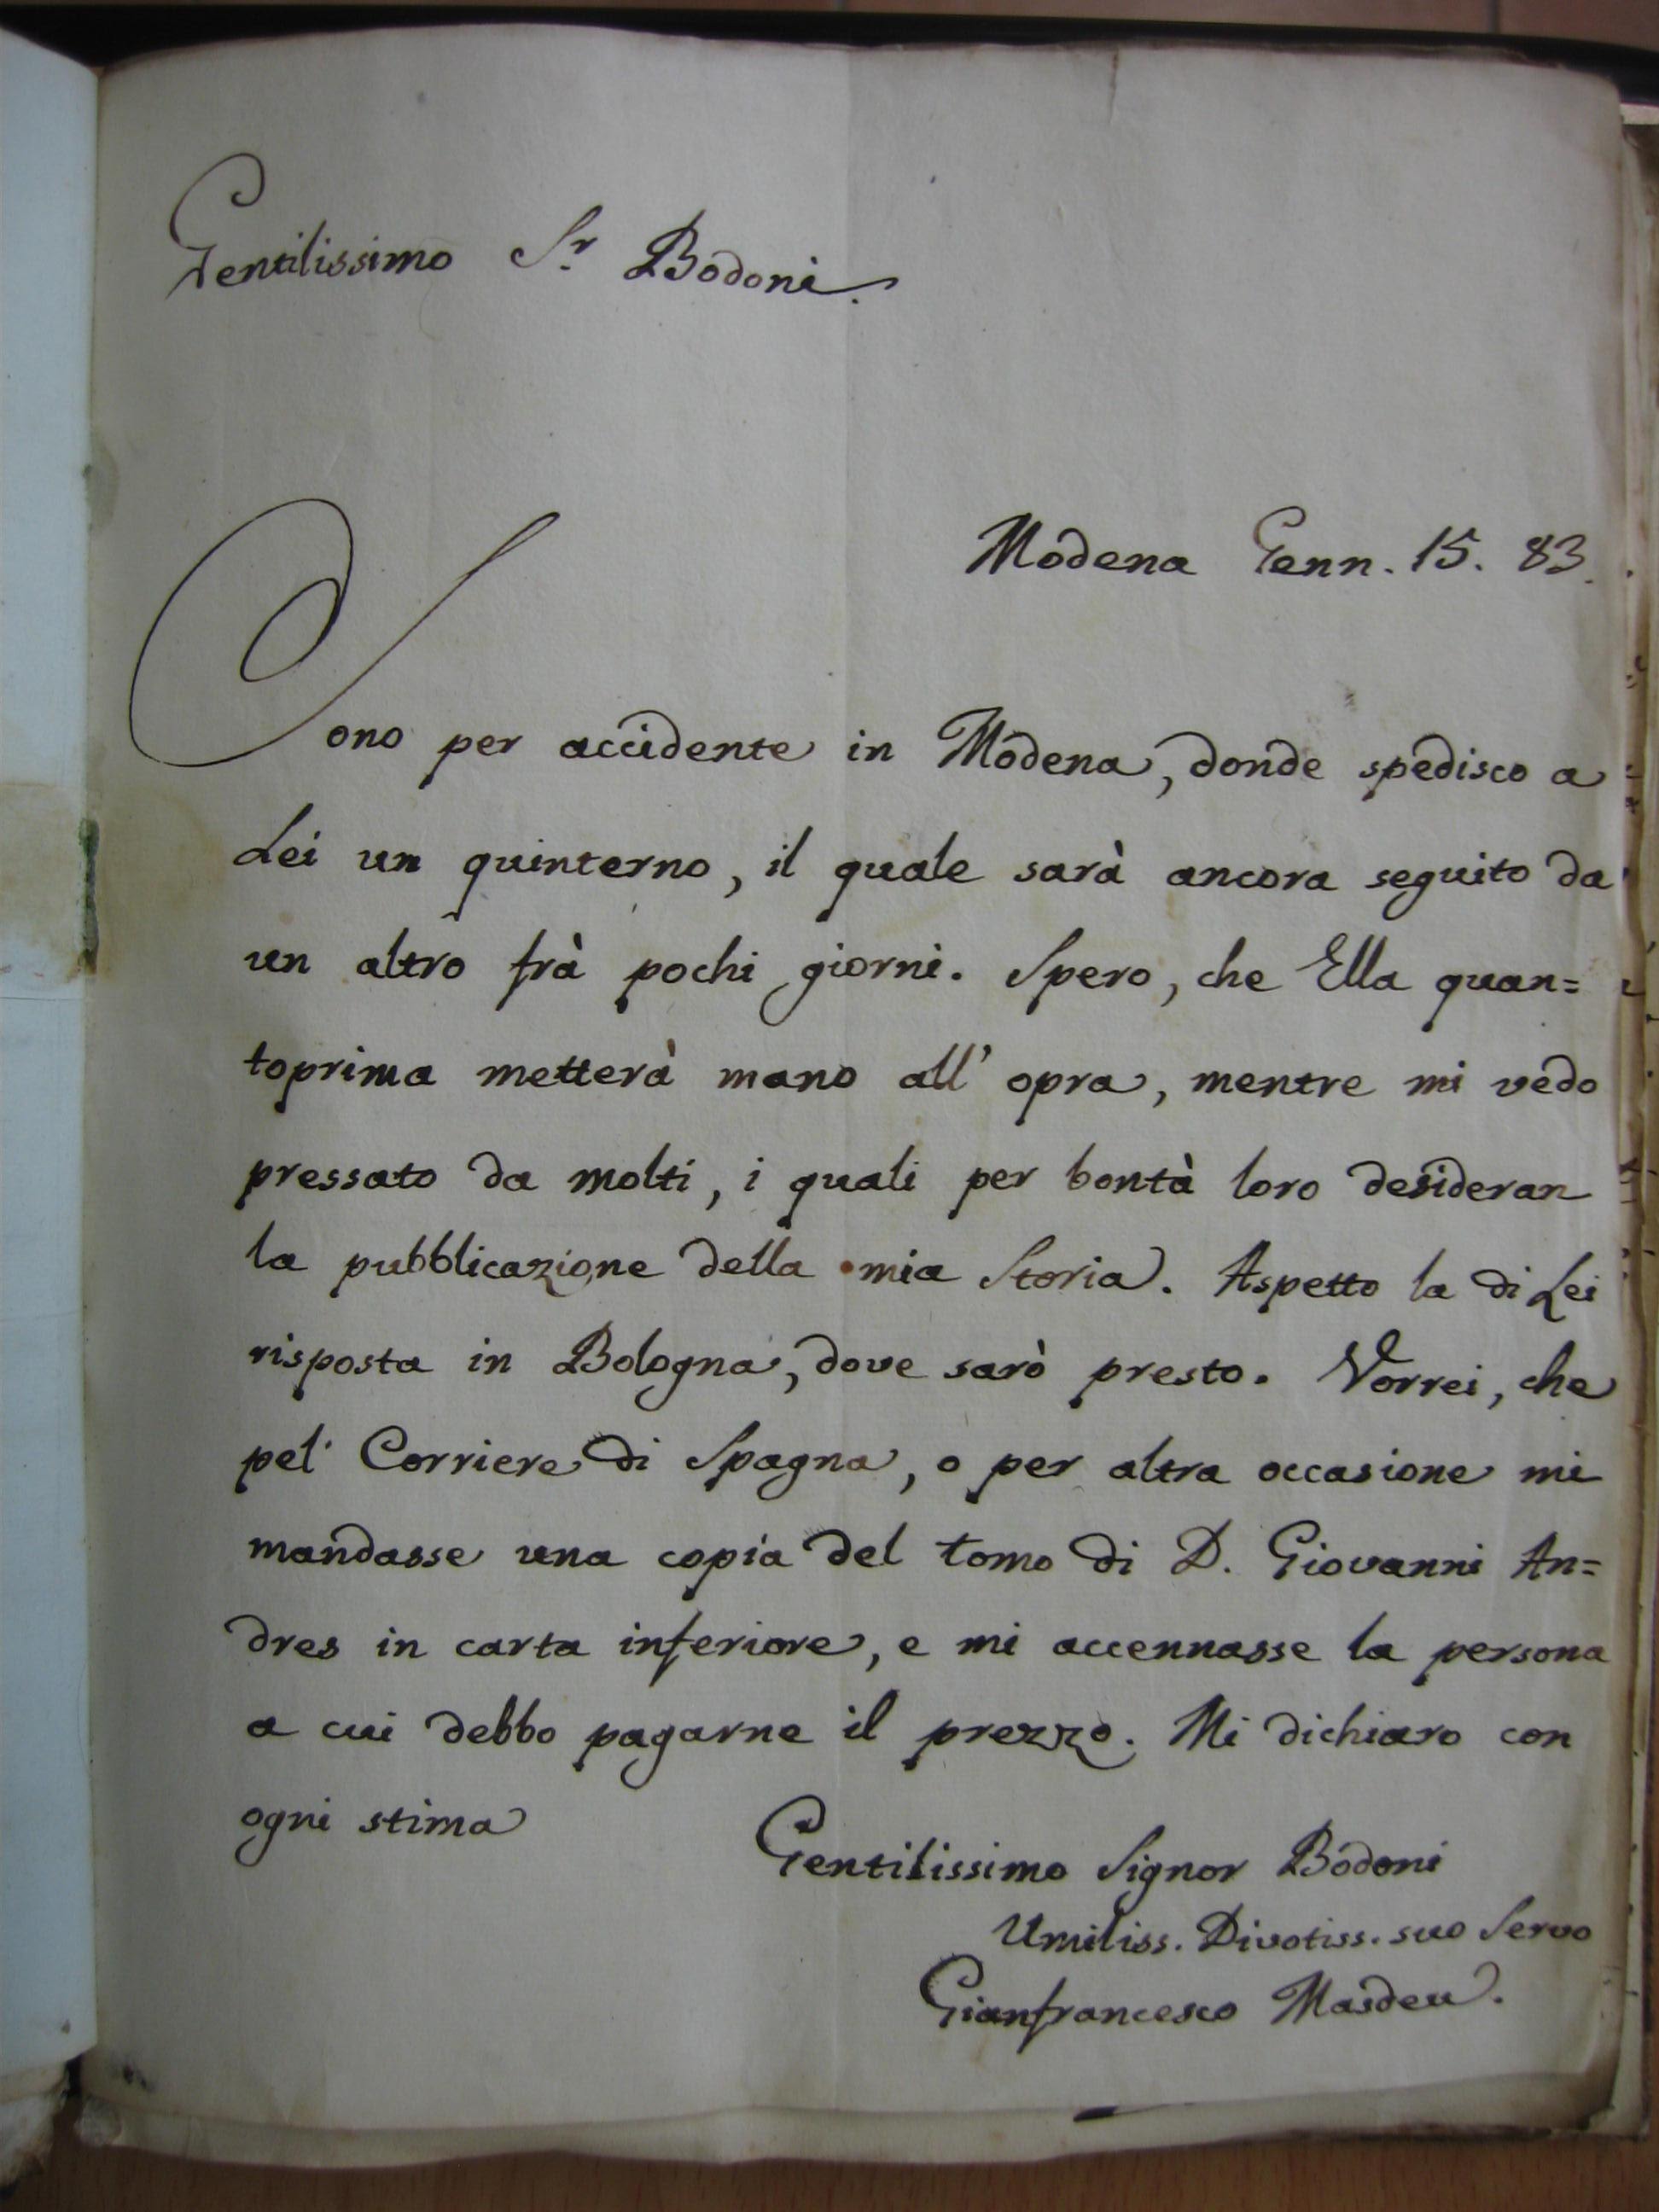 Gentilissimo Sr. Bodoni.
Modena Genn. 15. 83.
Sono per accidente in Modena, donde spedisco a
Lei un quinterno, il quale sarà ancora seguito da
un altro frà pochi giorni. Spero, che Ella quan=
toprima metterà mano all' opra, mentre mi vedo
pressato da molti, i quali per bontà loro desideran
la pubblicazione della mia Storia. Aspetto la di Lei
risposta in Bologna, dove sarò presto. Vorrei, che
pel' Corriere di Spagna, o per altra occasione mi
mandasse una copia del tomo di D. Giovanni An=
dres in carta inferiore, e mi accennasse la persona
a cui debbo pagarne il prezzo. Mi dichiaro con
ogni stima
Gentilissimo Signor Bodoni
Umiliss. Divotiss. suo Servo
Gianfrancesco Masdeu.